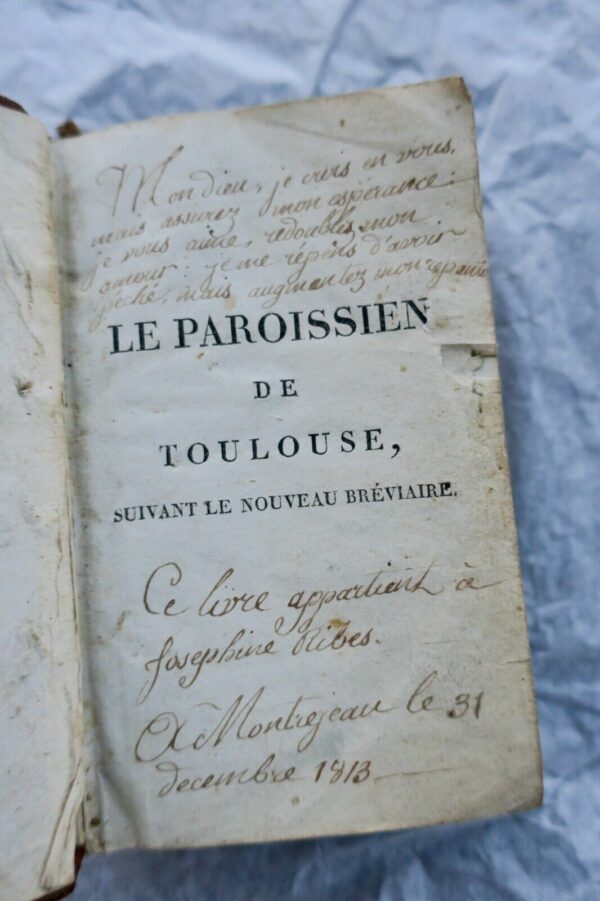 Mon dieu, je crois en vous,
mais assurez mon espérance :
je vous aime, redoublez mon
amour : je me répens d'avoir
péché, mais augmentez mon
LE PAROISSIEN
DE
TOULOUSE,
SUIVANT LE NOUVEAU BRÉVIAIRE.
Ce livre appartient à
Josephine Ribes.
A Montrejeau le 31
decembre 1813